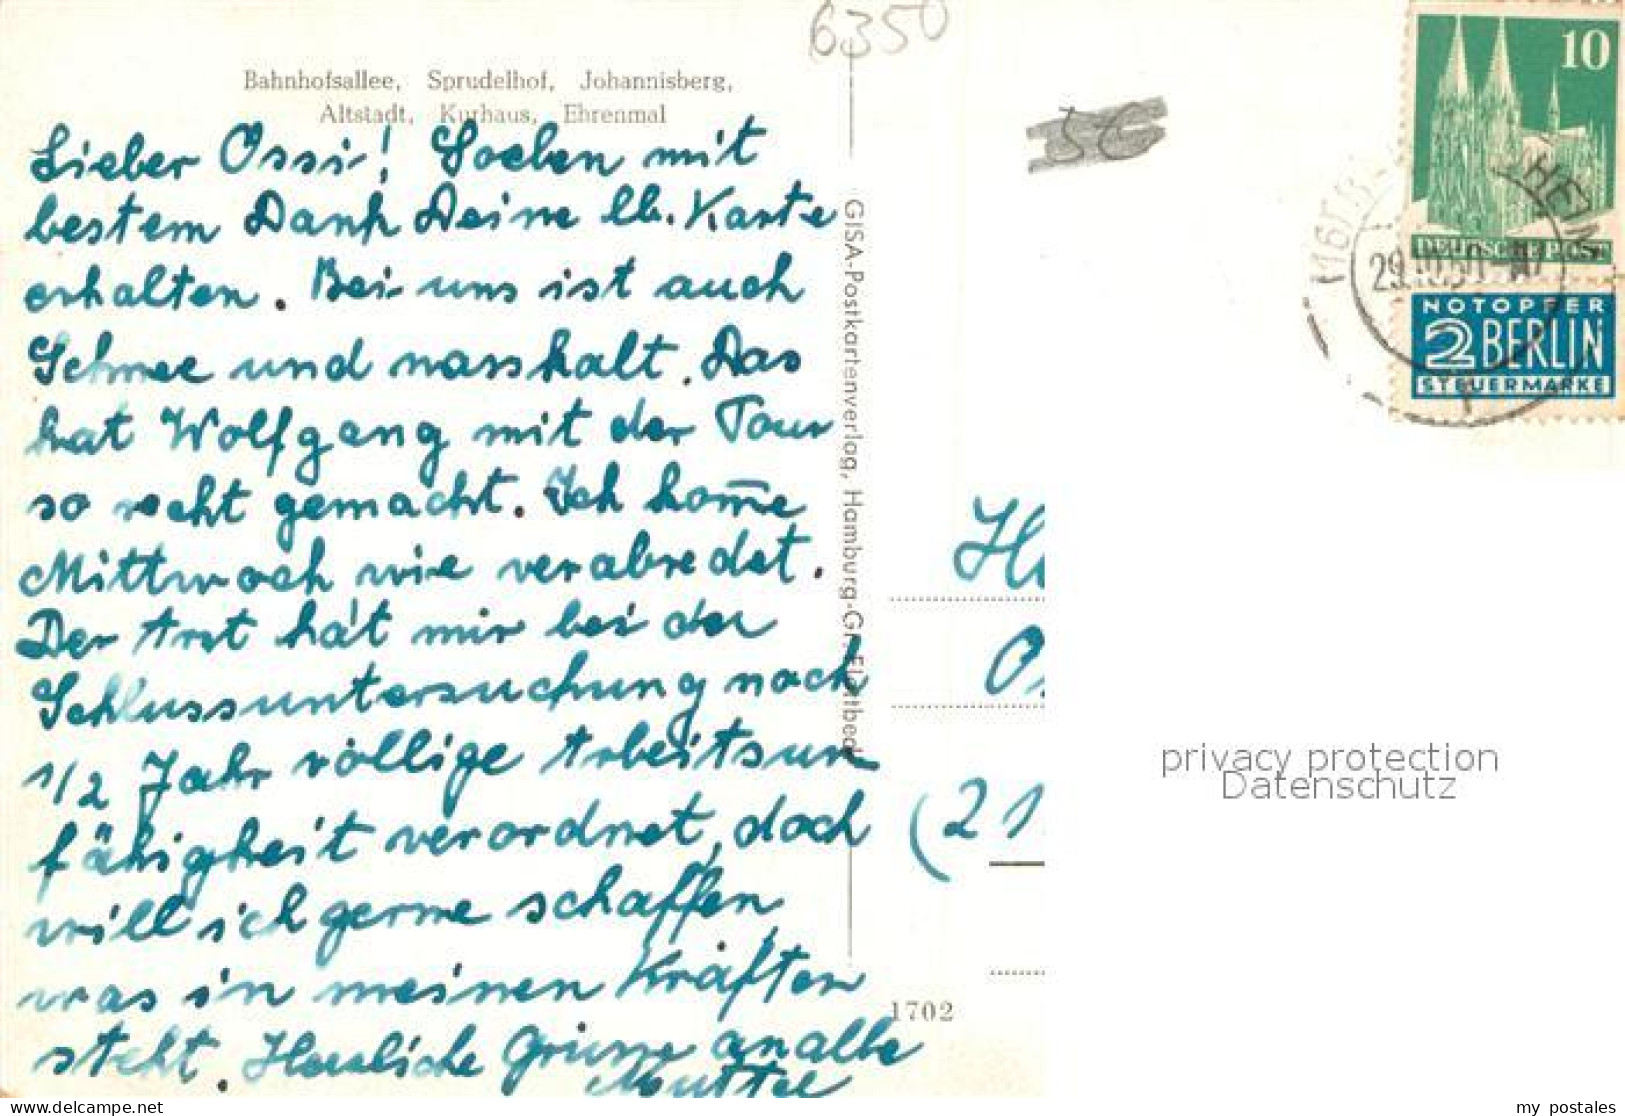 6350
Bahnhofsallee, Sprudelhof, Johannisberg,
Altstadt, Kurhaus, Ehrenmal
Lieber Ossi! Soeben mit
bestem Dank Deine lb. Karte
erhalten. Bei uns ist auch
Schnee und nasskalt. Das
hat Wolfgang mit der Tour
so recht gemacht. Ich kom̅e
Mittwoch wie verabredet.
Der Arzt hat mir bei der
Schlussuntersuchung noch
1/2 Jahr völlige Arbeitsun
fähigkeit verordnet, doch
will ich gerne schaffen
was in meinen Kräften
steht. Herzliche Grüsse an alle
Mutter
GISA-Postkartenverlag, Hamburg-Gr. Flottbek
10
DEUTSCHE POST
NOTOPFER
2 BERLIN
STEUERMARKE
HEIM
(21
1702
privacy protection
Datenschutz
delcampe.net
my_postales